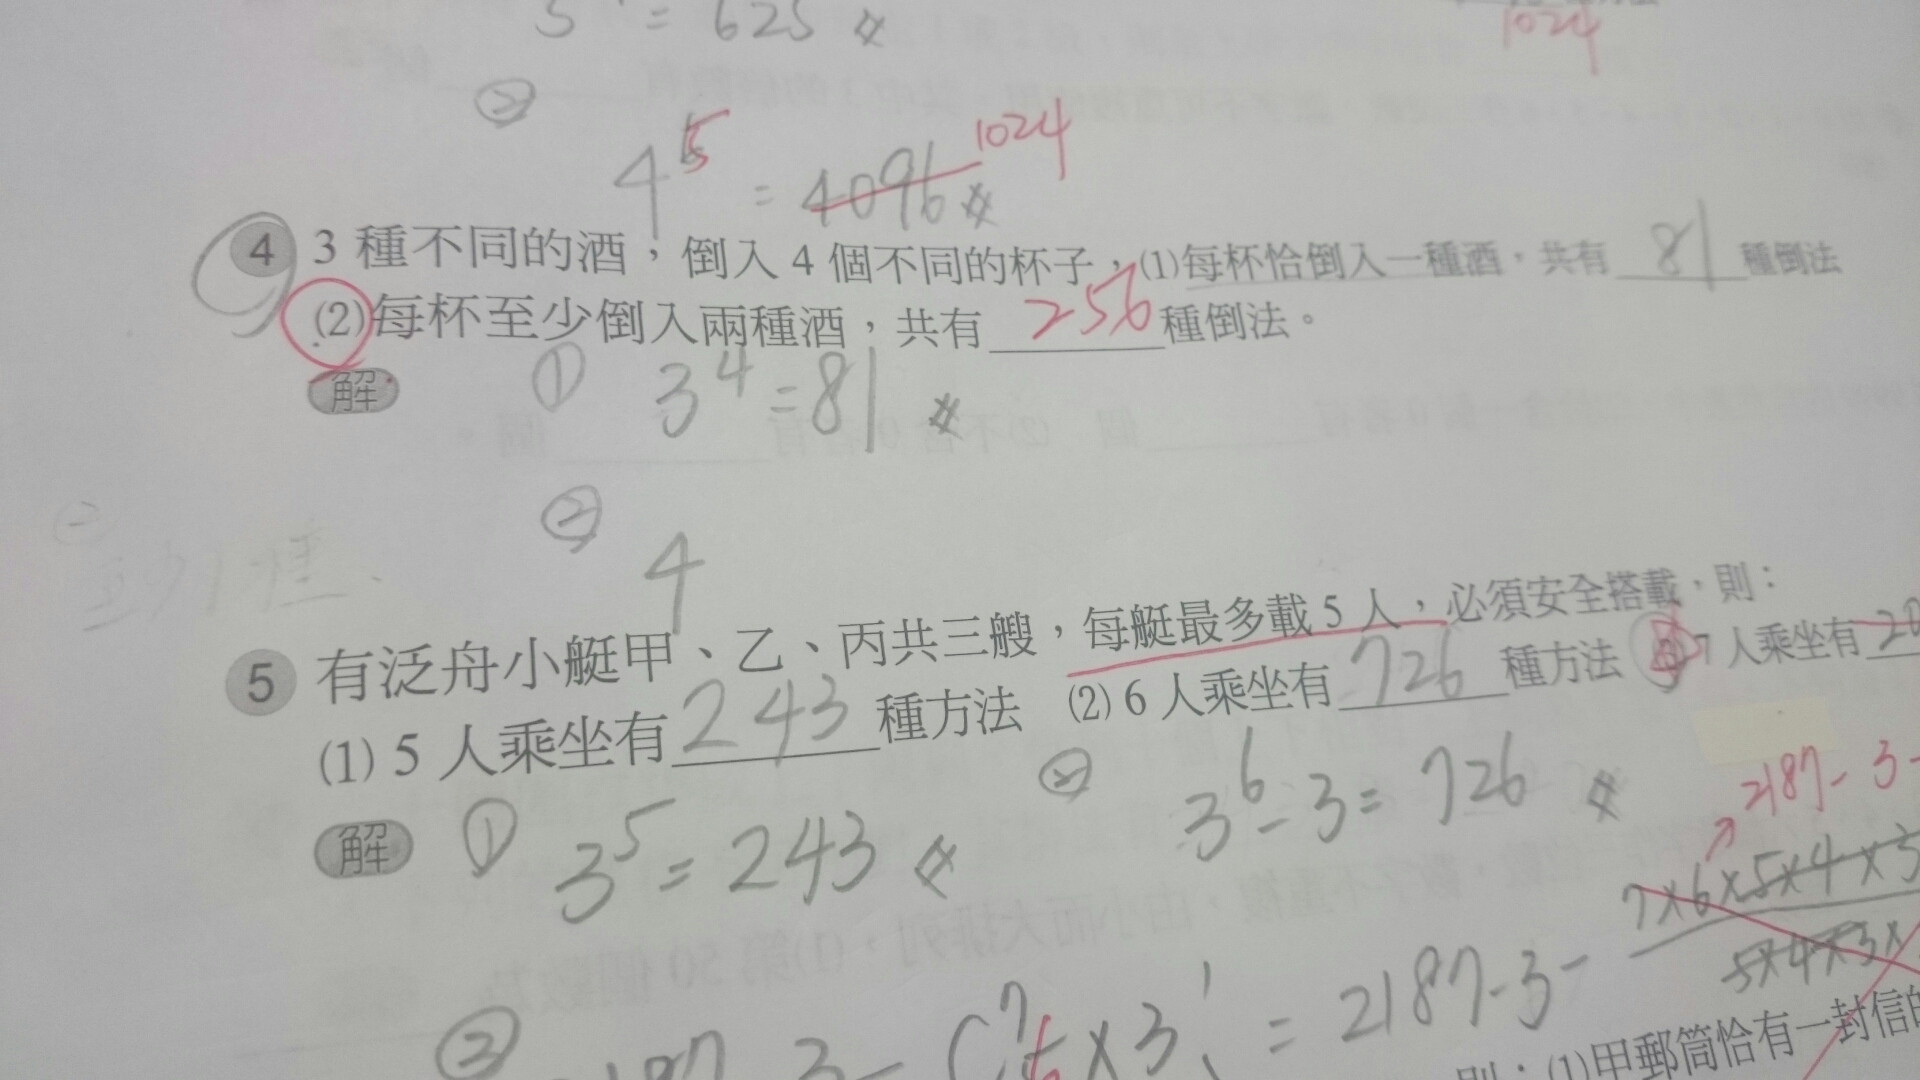 = 625
1024
②
4^5 = 4096 1024
4 3種不同的酒，倒入4個不同的杯子，(1)每杯恰倒入一種酒，共有 81 種倒法
(2)每杯至少倒入兩種酒，共有 256 種倒法。
解 ① 3^4 = 81
②
4
5 有泛舟小艇甲、乙、丙共三艘，每艇最多載5人，必須安全搭載，則：
(1) 5人乘坐有 243 種方法 (2) 6人乘坐有 726 種方法 7人乘坐有
解 ① 3^5 = 243 ② 3^6 - 3 = 726
2187 - 3 -
7×6×5×4×3
5×4×3×
③ 3 - C × 3 = 2187 - 3 -
則：(1)甲郵筒恰有一封信的